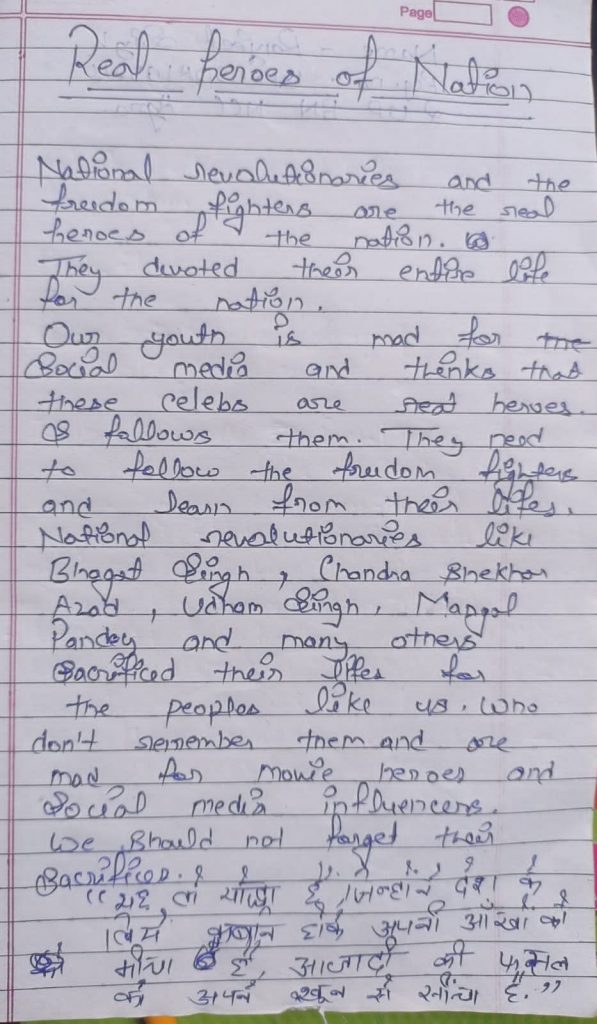 Page
Real heroes of Nation
National revolutionaries and the
freedom fighters are the real
heroes of the nation.
They devoted their entire life
for the nation.
Our youth is mad for the
Social media and thinks that
these celebs are real heroes.
& follows them. They need
to follow the freedom fighters
and learn from their lifes.
National revolutionaries like
Bhagat Singh, Chandra Shekhar
Azad, Udham Singh, Mangal
Pandey and many others
Sacrificed their lifes for
the peoples like us. who
don't remember them and are
mad for movie heroes and
Social media influencers.
We should not forget their
Sacrifices.
“ यह वो योद्धा है, जिन्होंने देश के
लिये कुर्बान होके अपनी आँखों को
मींचा है, आजादी की फसल
को अपने खून से सींचा है.”